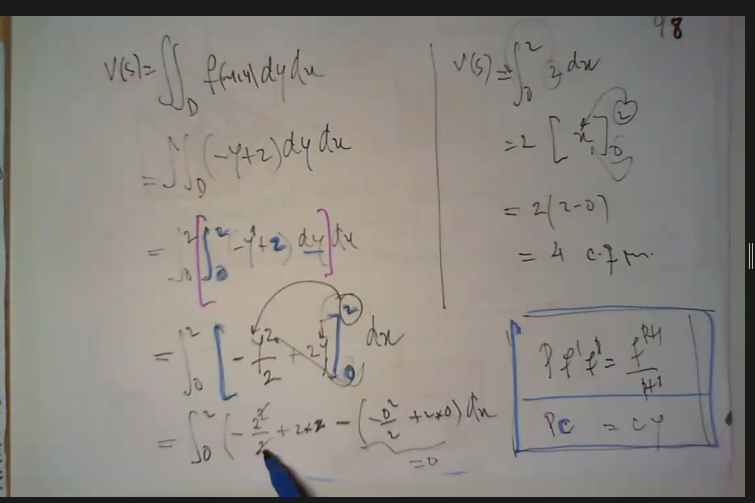 98
V(s) = ∬_D f(x,y) dy dx
= ∬_D (-y+2) dy dx
= ∫_0^2 [ ∫_0^2 -y+2) dy ] dx
= ∫_0^2 [ - y²/2 + 2y ]_0^2 dx
= ∫_0^2 (- 2²/2 + 2×2 - (-0²/2 + 2×0) dx
= 0
V(s) = ∫_0^2 2 dx
= 2 [ x ]_0^2
= 2(2-0)
= 4
= c y